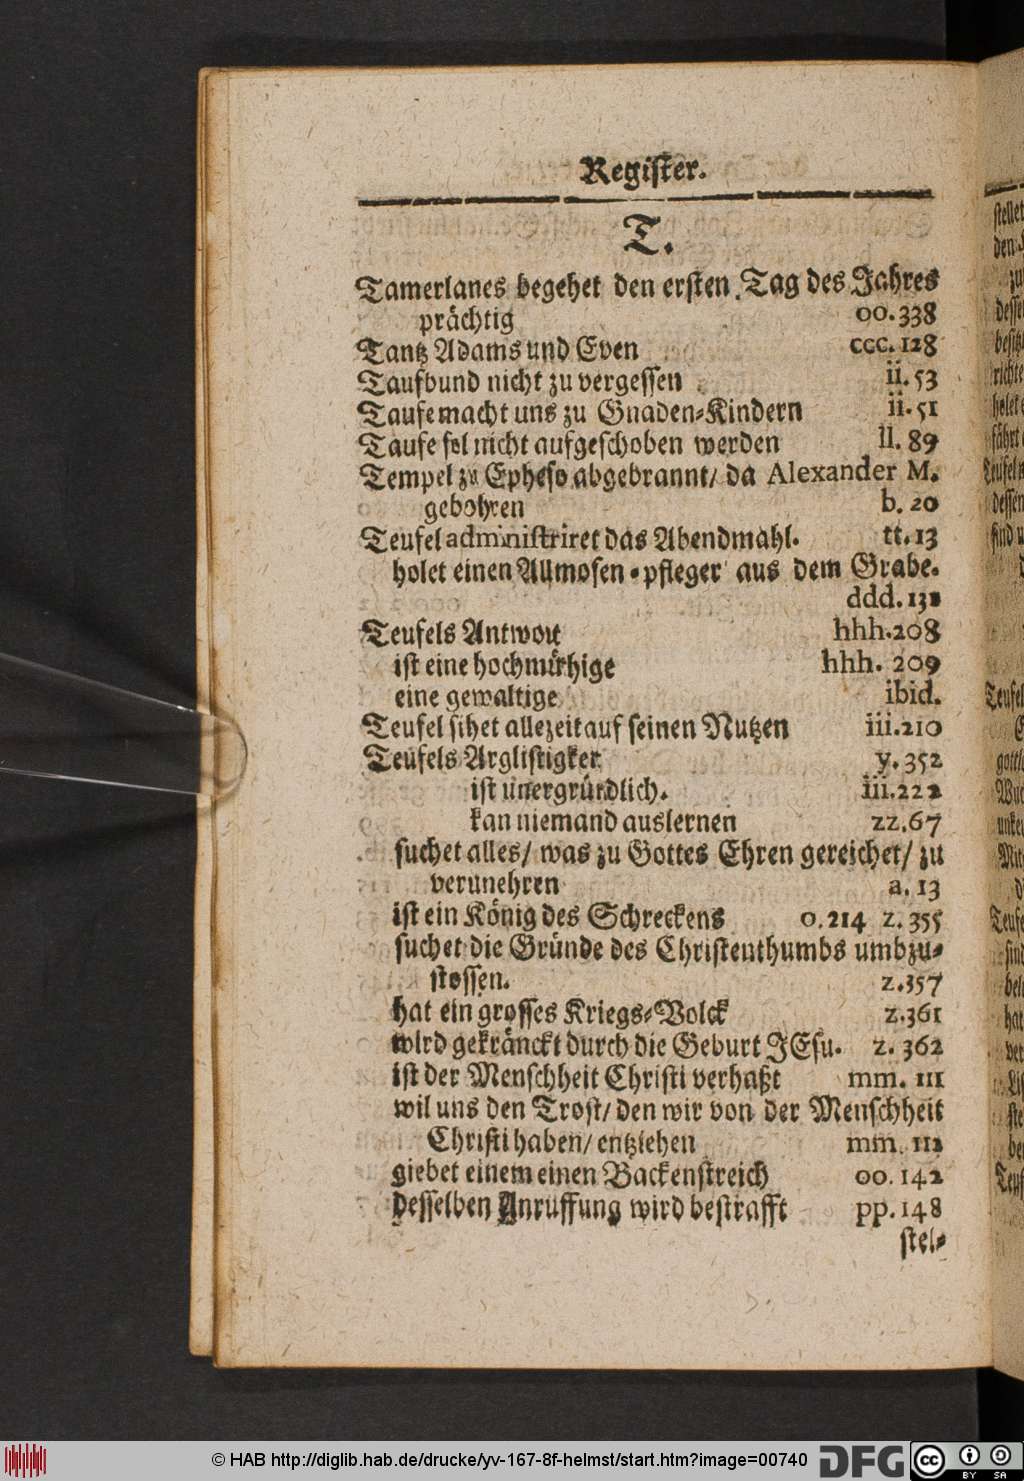 Register.
T.
Tamerlanes begehet den ersten Tag des Jahres
prächtig 00.338
Tantz Adams und Even ccc. 128
Taufbund nicht zu vergessen ii. 53
Taufe macht uns zu Gnaden-Kindern ii. 51
Taufe sol nicht aufgeschoben werden ll. 89
Tempel zu Epheso abgebrannt/ da Alexander M.
gebohren b. 20
Teufel administriret das Abendmahl. tt. 13
holet einen Allmosen-pfleger aus dem Grabe.
ddd. 131
Teufels Antwort hhh.208
ist eine hochmüthige hhh. 209
eine gewaltige ibid.
Teufel sihet allezeit auf seinen Nutzen iii.210
Teufels Arglistigket y. 352
ist unergründlich. iii.222
kan niemand auslernen zz.67
suchet alles/ was zu Gottes Ehren gereichet/ zu
verunehren a. 13
ist ein König des Schreckens o.214 z. 355
suchet die Gründe des Christenthumbs umbzu-
stossen. z.357
hat ein grosses Kriegs-Volck z.361
wird gekränckt durch die Geburt JEsu. z. 362
ist der Menschheit Christi verhaßt mm. 111
wil uns den Trost/ den wir von der Menschheit
Christi haben/ entziehen mm. 112
giebet einem einen Backenstreich oo. 142
desselben Anruffung wird bestrafft pp. 148
stel-
stellet
den
zu
desse
besitz
richte
holet e
fährt
Teufel
dessen
sind u
Teufel
gottl
unke
Mit
Teufe
sind
hat
ver
ste
be
Teuf
© HAB http://diglib.hab.de/drucke/yv-167-8f-helmst/start.htm?image=00740
DFG
cc
BY SA